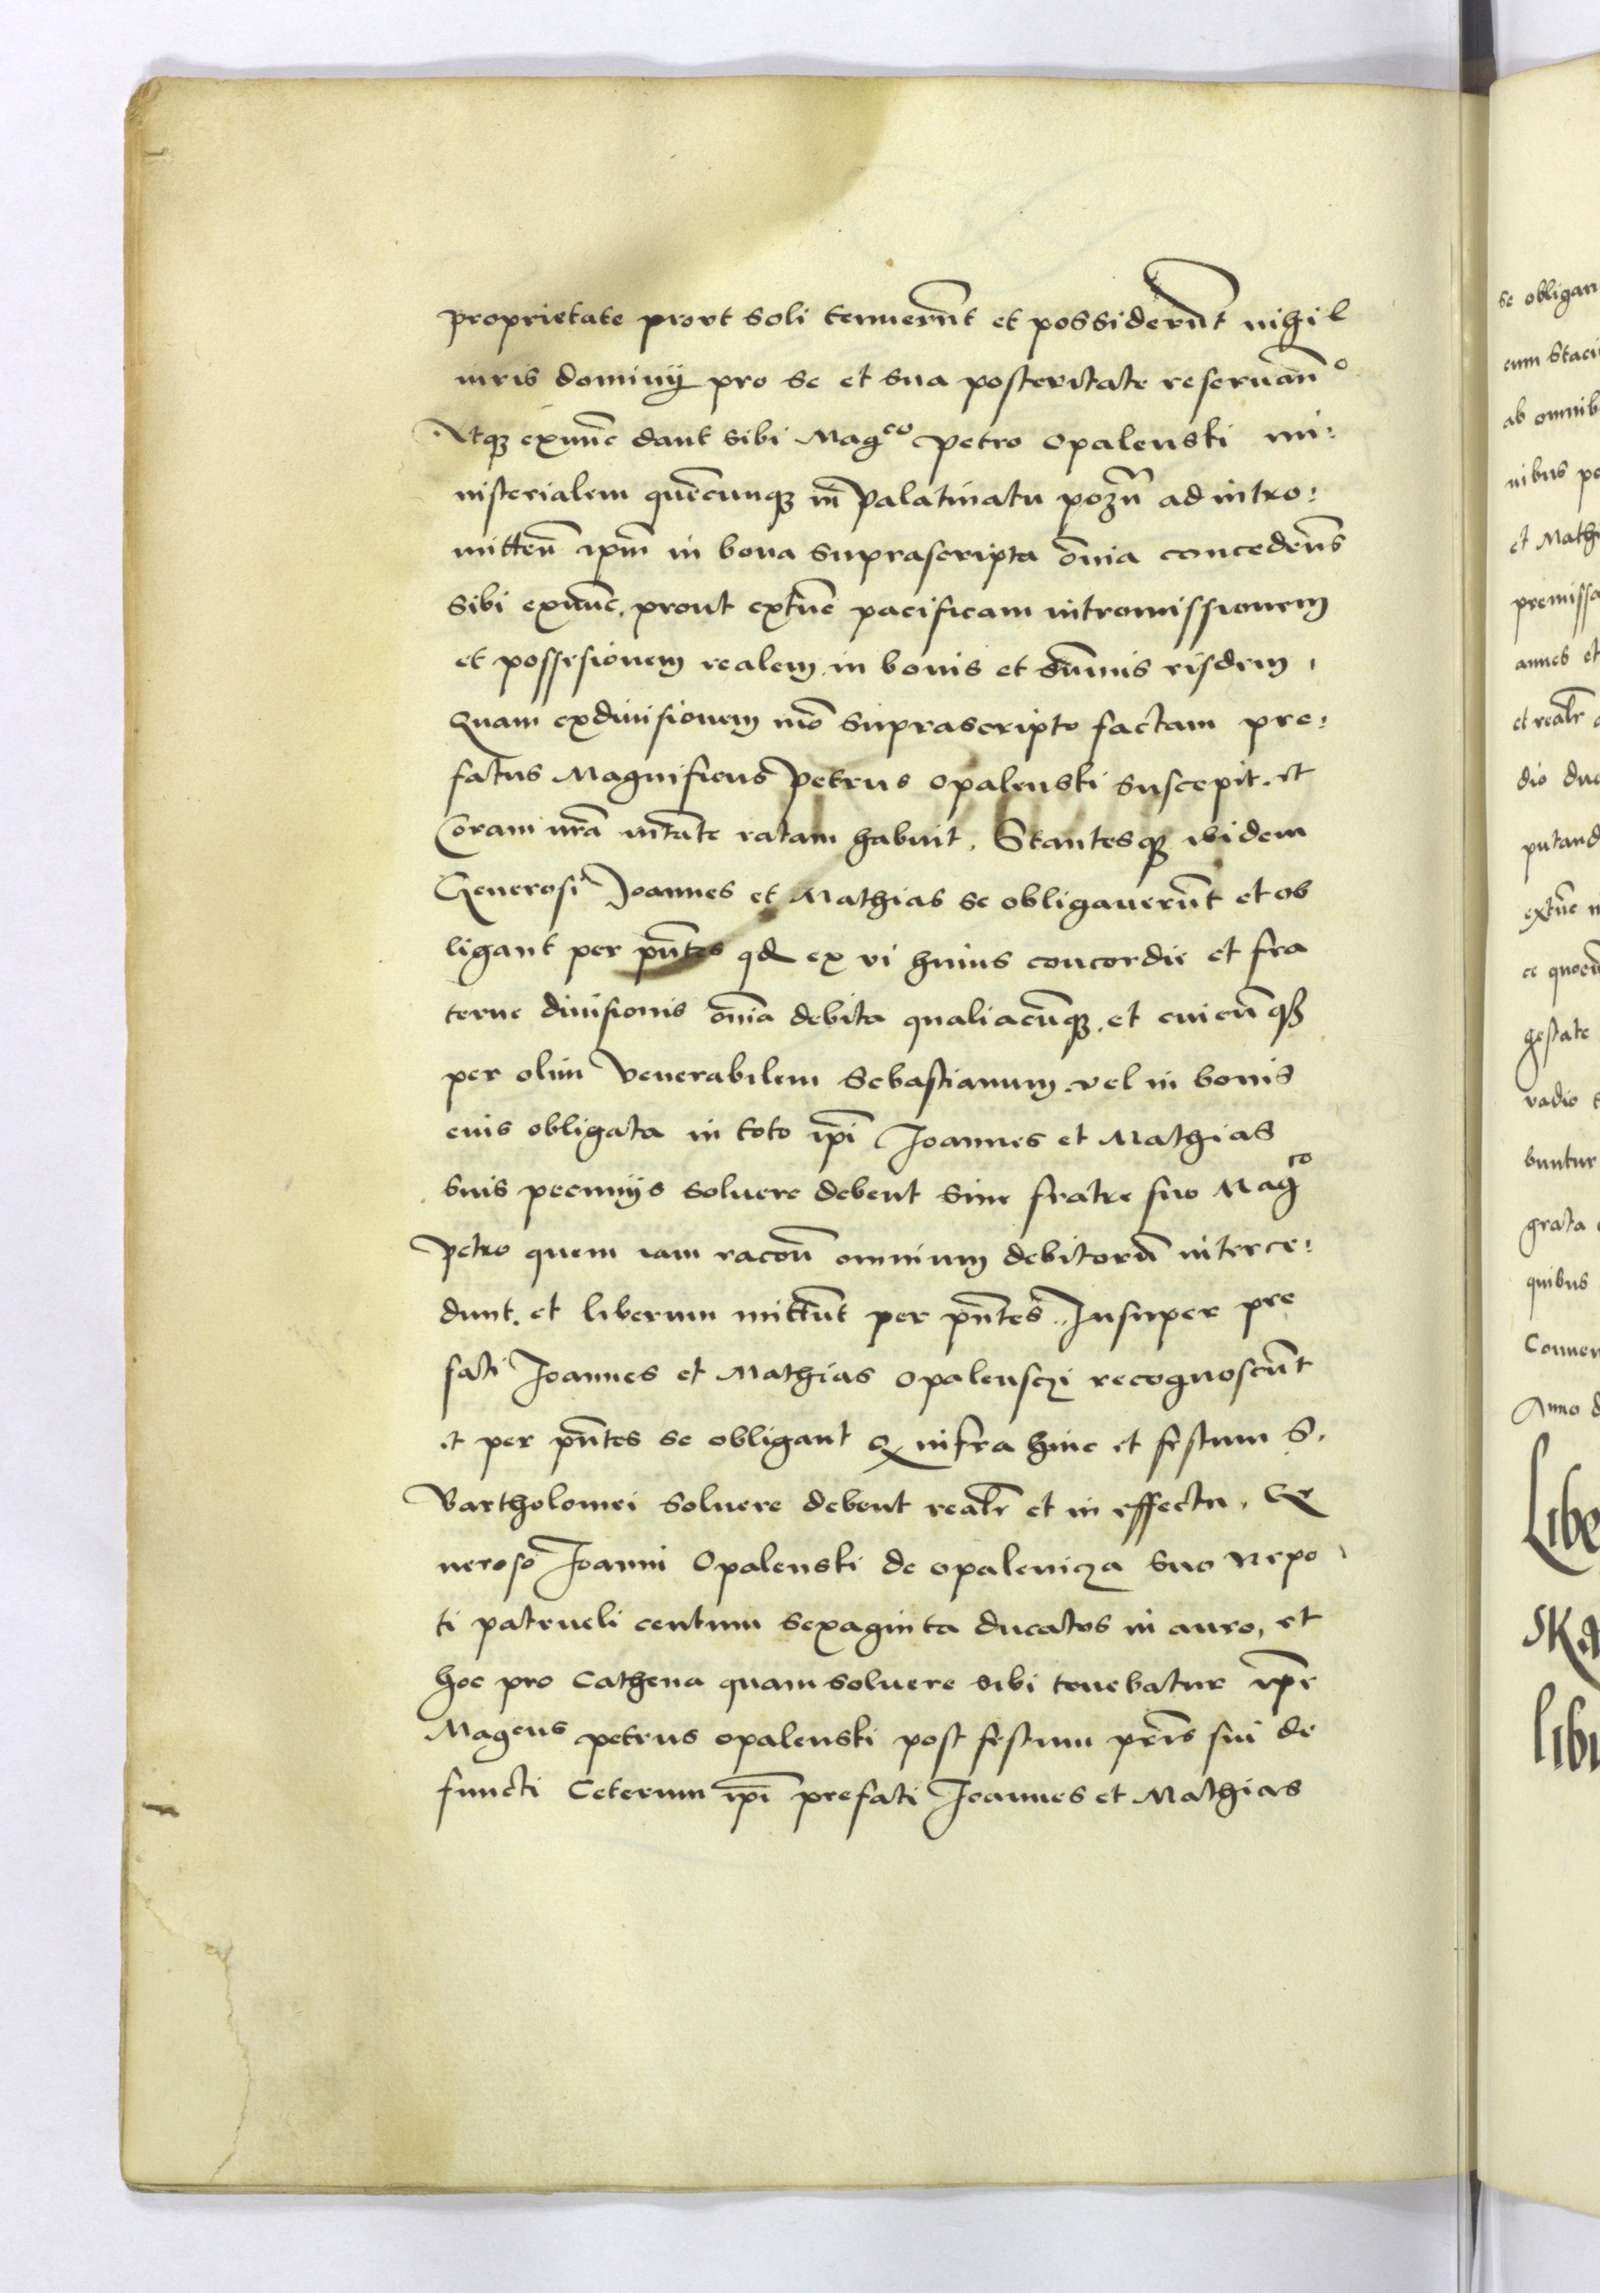 proprietate prout soli tenuerūnt et possiderūnt nihil
iuris dominij pro se et sua posteritate reseruān°
Atqꝫ exnūc dant sibi Mag^co Petro Opalenski mi:
nisterialem quēcunqꝫ in Palatinatu pozn̄ ad intro:
mitten̄ ip̄m in bona suprascripta om̄ia concedēns
sibi exnūc, prout extūc pacificam intromissionem
et possesionem realem in bonis et sūmis eisdem,
Quam exdiuisionem mō suprascripto factam pre:
fatus Magnificus Petrus Opalenski suscepit. et
Coram nr̄a
ratam habuit. Stantesqꝫ ibidem
Generosi Joannes et Mathias se obligauerūnt et ob
ligant per pn̄tes qd ex vi huius concordie et fra
terne diuisionis om̄ia debita qualiacūnqꝫ, et cuicūnqꝫ
per olim Venerabilem Sebastianum vel in bonis
euis obligata in toto ip̄i Joannes et Mathias
suis pecunijs soluere debent sine fratre suo Mag^co
Petro quem iam racōn̄ omnium debitorū interce:
dunt, et liberum mittūnt per pn̄tes. Insuper pre
fati Joannes et Mathias Opalensczi recognoscūnt
et per pn̄tes se obligant qꝫ infra hinc et festum S.
Bartholomei soluere debent realr̄ et in effectu, Ge
neroso Joanni Opalenski de Opalenicza suo Nepo
ti patrueli centum sexaginta ducatos in auro, et
hoc pro Cathena quam soluere sibi tenebatur ip̄e
Mag^cus petrus opalenski post festum pr̄is sui de
functi Ceterum ip̄i prefati Joannes et Mathias
se obligan
cum
ab omnib
nibus po
et Mathi
premissa
annes et
et realr̄
dio duc
putand
extūc
ce
gestate
vadio
buntur
grata
quibus
Conuen
Anno d
Libe
SKA
libu